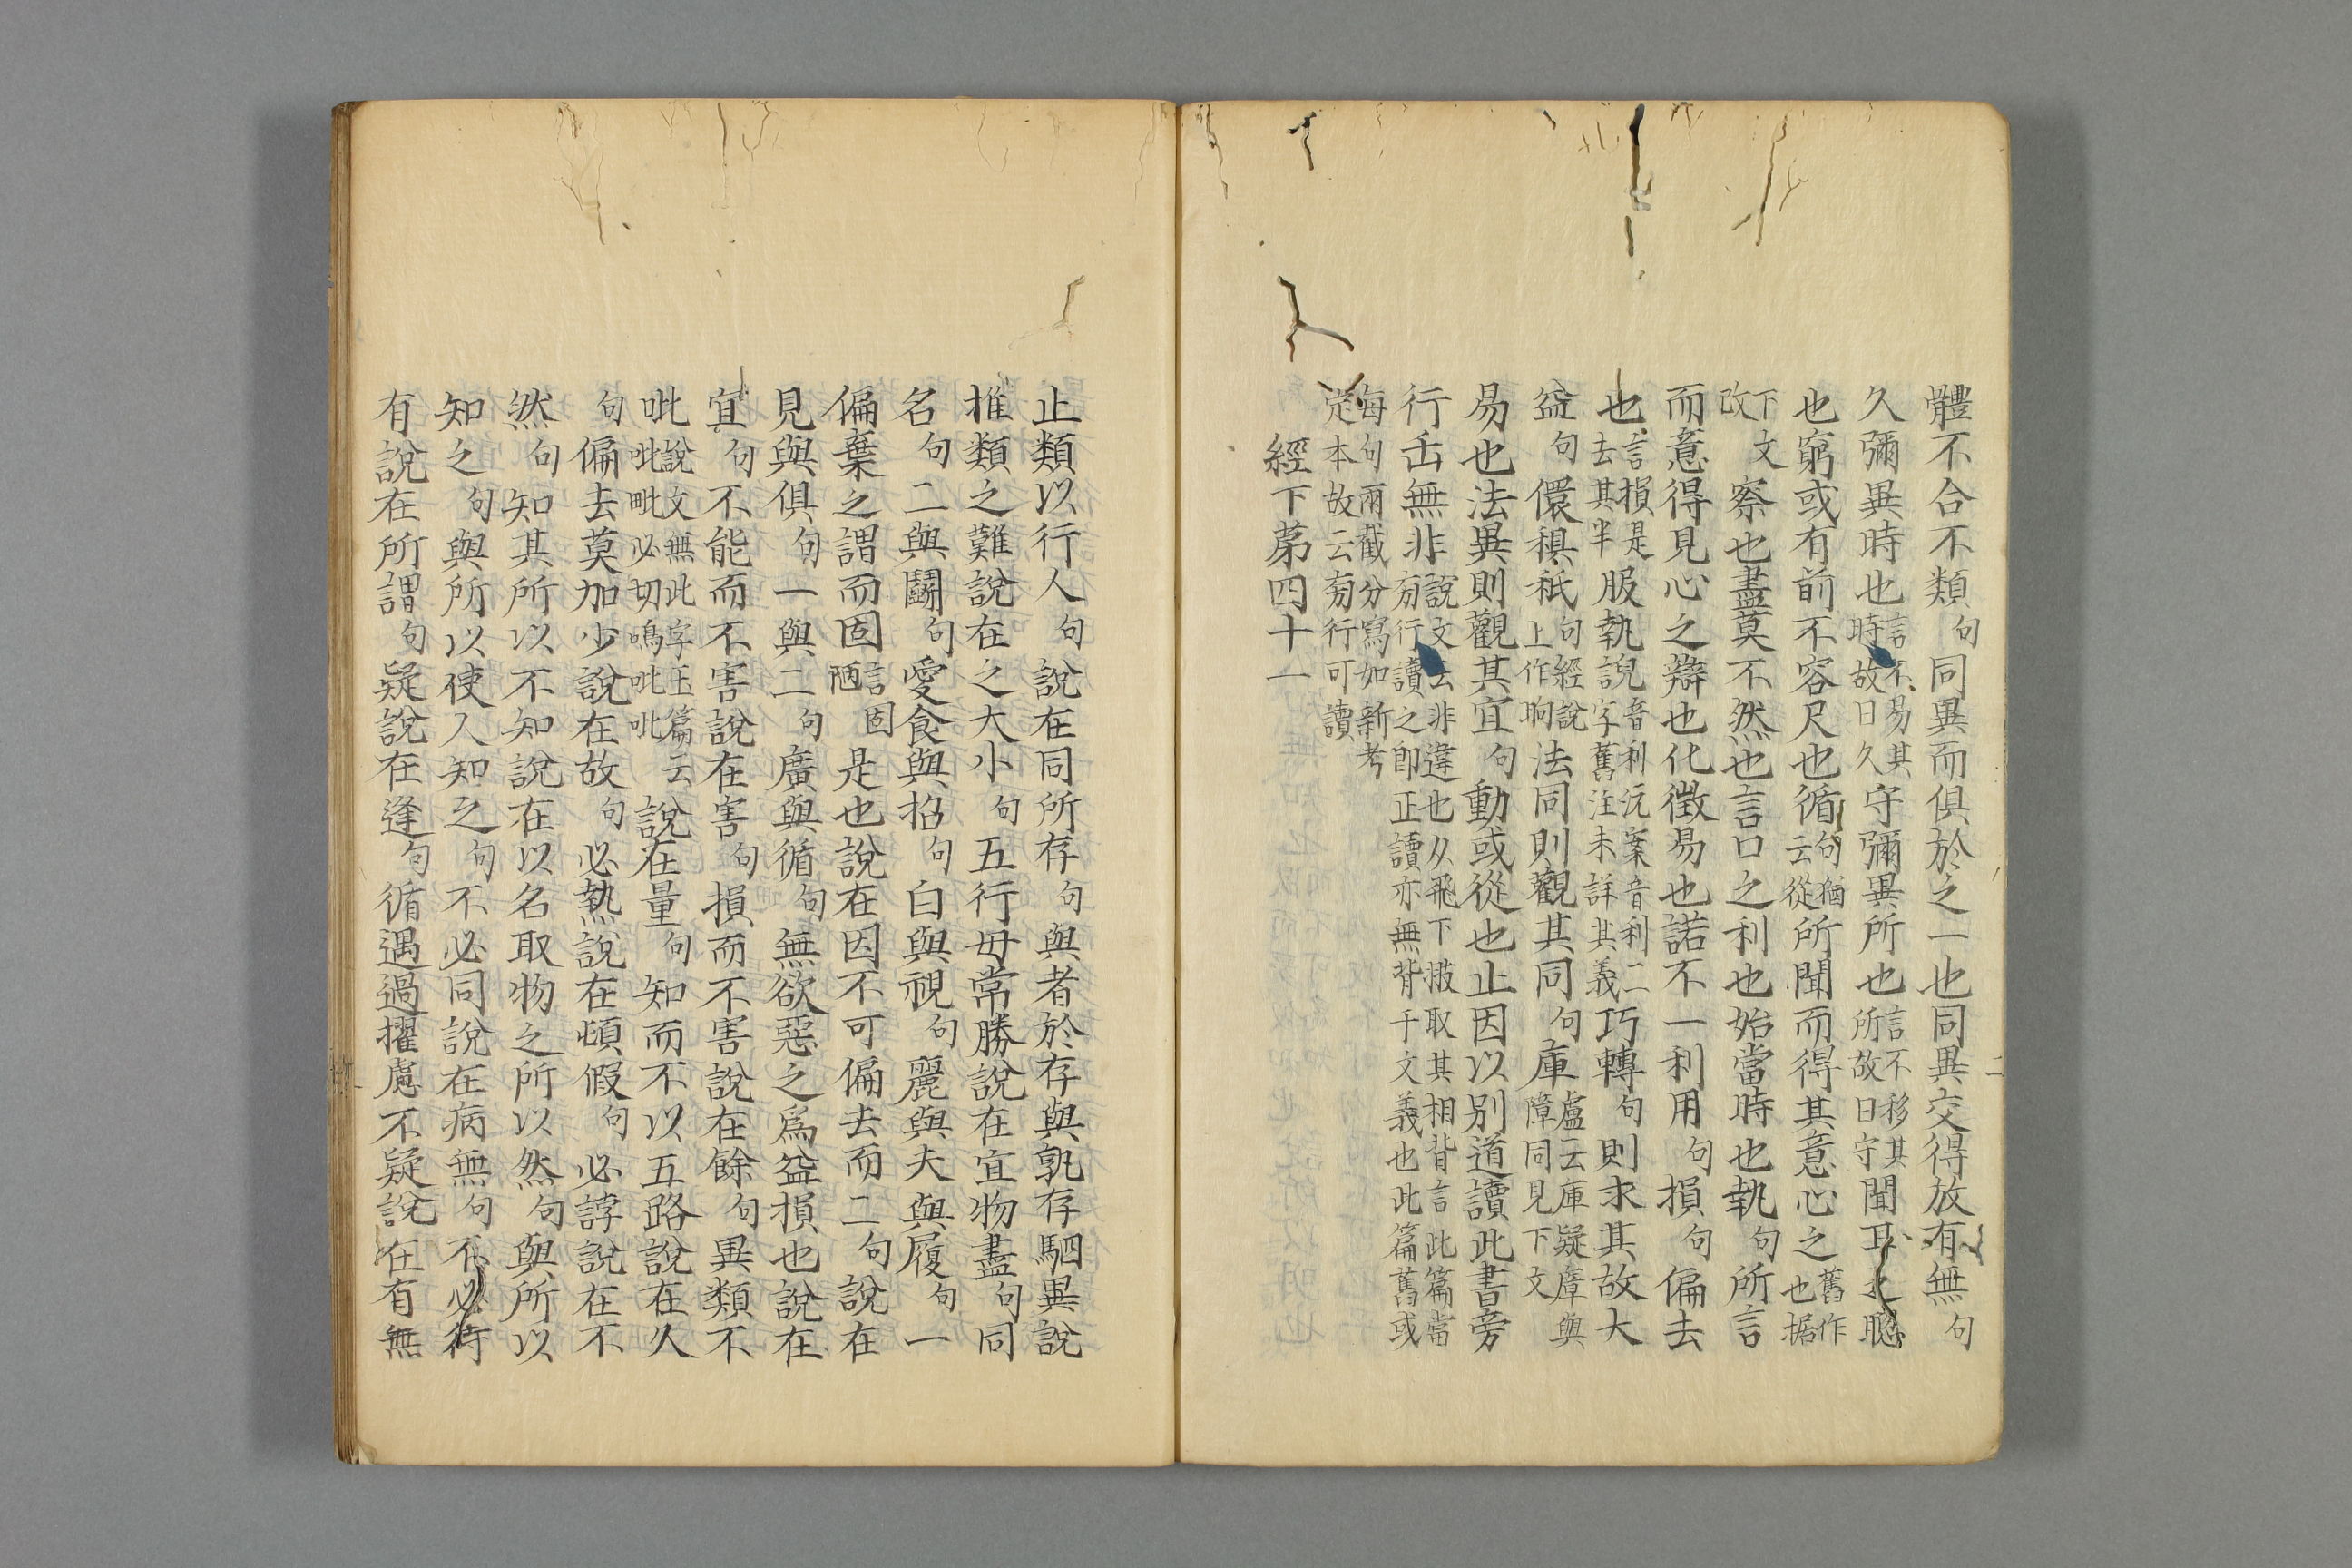 體不合不類句同異而俱於之一也同異交得放有無句
久彌異時也言不易其時故曰久守彌異所也言不移其所故曰守聞耳之聰
也窮或有前不容尺也循句猶云從所聞而得其意心之舊作也据
下文改察也盡莫不然也言口之利也始當時也執句所言
而意得見心之辯也化徵易也諾不一利用句損句偏去
也言損是去其半服執說音利沅案音利二字舊注未詳其義巧轉句則求其故大
益句儇䅵秖句經說上作昫法同則觀其同句庫盧云庫疑庳與障同見下文
易也法異則觀其宜句動或從也止因以別道讀此書旁
行舌無非說文云非違也从飛下翄取其相背言此篇當旁行讀之即正讀亦無背于文義也此篇舊或
每句兩截分寫如新考定本故云旁行可讀
經下第四十一
二
止類以行人句說在同所存句與者於存與孰存駟異說
推類之難說在之大小句五行毋常勝說在宜物盡句同
名句二與鬭句愛食與招句白與視句麗與夫與履句一
偏棄之謂而固言固陋是也說在因不可偏去而二句說在
見與俱句一與二句廣與循句無欲惡之爲益損也說在
宜句不能而不害說在害句損而不害說在餘句異類不
吡說文無此字玉篇云吡吡毗必切鳴吡吡說在量句知而不以五路說在久
句偏去莫加少說在故句必熱說在頓假句必誖說在不
然句知其所以不知說在以名取物之所以然句與所以
知之句與所以使人知之句不必同說在病無句不必待
有說在所謂句疑說在逢句循遇過擢慮不疑說在有無